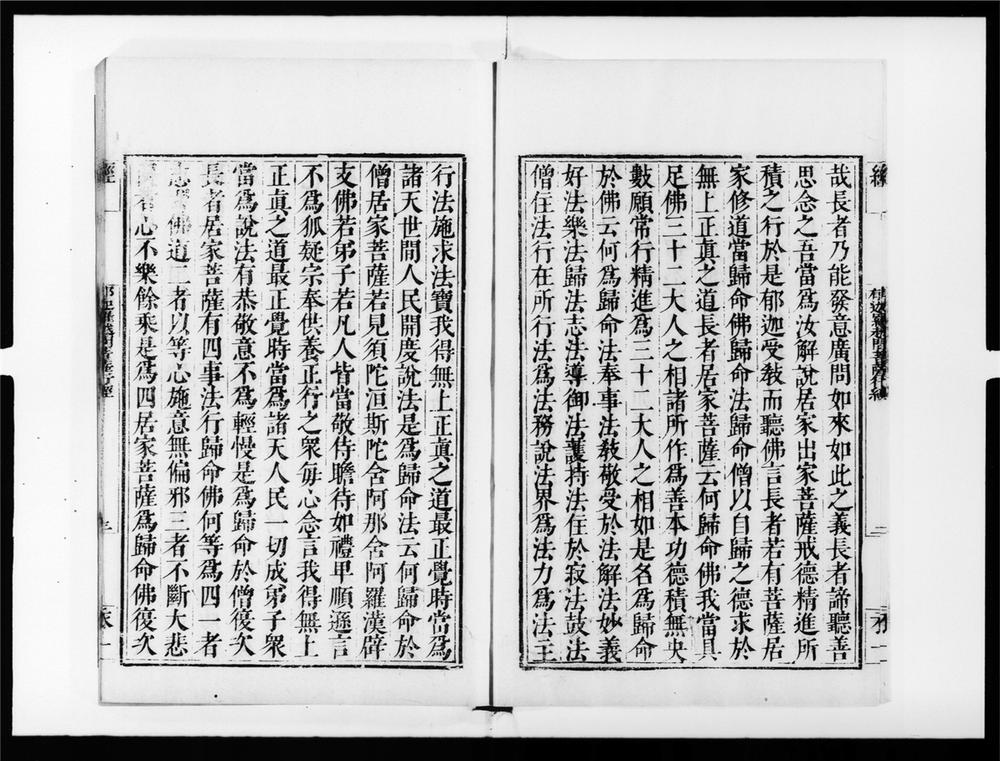 哉長者乃能發意廣問如來如此之義長者諦聽善
思念之吾當爲汝解說居家出家菩薩戒德精進所
積之行於是郁迦受敎而聽佛言長者若有菩薩居
家修道當歸命佛歸命法歸命僧以自歸之德求於
無上正眞之道長者居家菩薩云何歸命佛我當具
足佛三十二大人之相諸所作爲善本功德積無央
數願常行精進爲三十二大人之相如是名爲歸命
於佛云何爲歸命法奉事法敎敬受於法解法妙義
好法樂法歸法志法導御法護持法住於寂法鼓法
僧住法行在所行法法爲法務說法界爲法力爲法主
行法施求法寶我得無上正眞之道最正覺時當爲
諸天世間人民開度說法是爲歸命法云何歸命於
僧居家菩薩若見須陀洹斯陀含阿那含阿羅漢辟
支佛若弟子若凡人皆當敬侍瞻待如禮卑順遜言
不爲狐疑宗奉供養正行之衆每心念言我得無上
正眞之道最正覺時當爲諸天人民一切成弟子衆
當爲說法有恭敬意不爲輕慢是爲歸命於僧復次
長者居家菩薩有四事法行歸命佛何等爲四一者
佛道二者以等心施意無偏邪三者不斷大悲
心不樂餘乘是爲四居家菩薩爲歸命佛復次
經